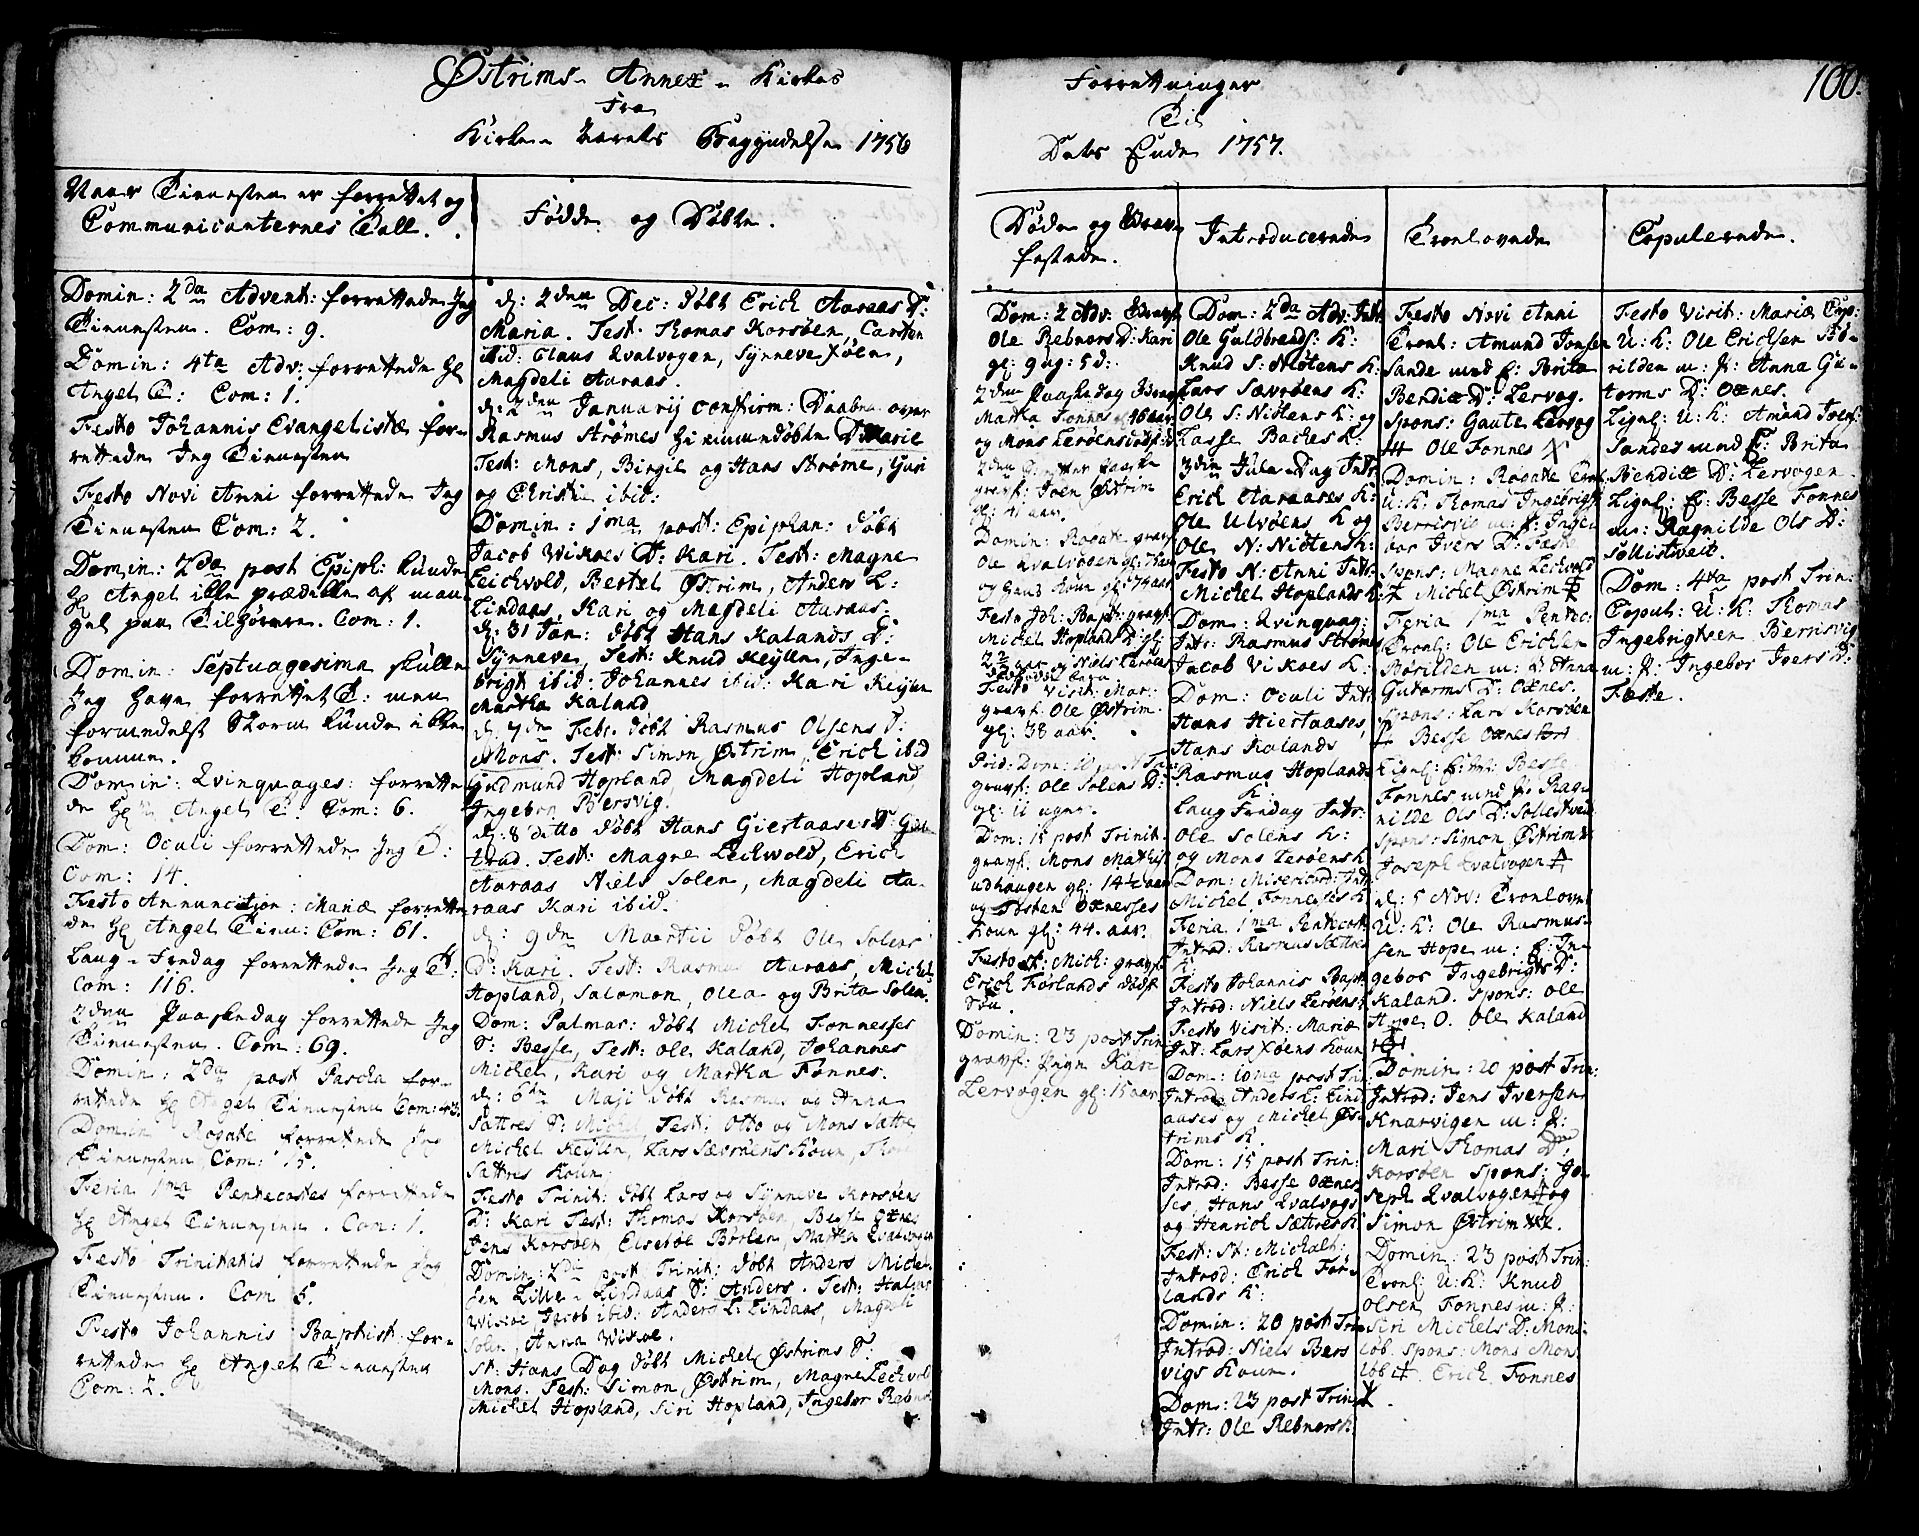 Østrims Annex Kirkes
Fra
Kirke Aarets Begyndelse 1756
Naar Tienesten er forrettet og
Communicanternes Tall.
Fødde og Døbte.
Domin: 2da Advent: forrettede Jeg
Tienesten. Com: 9.
Domin: 4ta Adv: forrettede Hr
Angel T: Com: 1.
Festo Johannis Evangelistæ for-
rettede Jeg Tienesten
Festo Novi Anni forrettede Jeg
Tienesten Com: 2.
Domin: 2da post Epiph: kunde
Hr Angel ille prædike af man
gel paa Tilhørere. Com: 1.
Domin: Septuagesima skulle
Jeg have forrettet T: men
formedelst Storm kunde ikke
komme.
Domin: Qvinquages: forrette
de Hr Angel T. Com: 6.
Dom: Oculi forrettede Jeg T:
Com: 14.
Festo Annunciation: Mariæ forrette
de Hr Angel Tien: Com: 61.
Lang-Fredag forrettede Jeg T:
Com: 116.
2den Paaskedag forrettede Jeg
Tienesten. Com: 69.
Domin: 2da post Pascha for-
rettede Hr Angel Tienesten Com: 43.
Domin Rogate forrettede Jeg
Tienesten Com: 15.
Feria 1ma Pentecostes forrettede
Hr Angel Tienesten. Com: 1.
Festo Trinitatis forrettede Jeg
Tienesten. Com 5.
Festo Johannis Baptist: for-
rettede Hr Angel Tienesten
Com: 2.
d: 2den Dec: døbt Erich Aaraas D:
Maria. Test: Thomas Korsøen, Carsten
ibid: Claus Qvalvogen, Synneve Føen,
Magdeli Aaraas.
d: 2den Januarij confirm: Daaben over
Rasmus Strømes Hiemmedøbte D Marie
Test: Mons, Birgit og Hans Strøme, Guri
og Christi ibid:
Domin: 1ma post: Epiphan: døbt
Jacob Wikoes D: Kari. Test: Magne
Leichvold, Bertel Østrim, Anders L:
Lindaas, Kari og Magdeli Aaraas.
d: 31 Jan: døbt Hans Kalands D:
Synneve, Test: Knud Keylen, Inge-
brigt ibid: Johannes ibid: Kari Keylen
Martha Kaland
d: 7de Febr. døbt Rasmus Olsens S:
Mons. Test: Simon Østrim, Erich ibid
Gudmund Hopland, Magdeli Hopland,
Ingebor Bersvig.
d: 8 ditto døbt Hans Giertaases D: Giær
trud. Test: Magne Leichvold, Erich
Aaraas Niels Solen, Magdeli Aa-
raas Kari ibid.
d: 9de Martii døbt Ole Solens
D: Kari. Test: Rasmus Aaraas, Michel
Hopland, Salomon, Olea og Brita Solen.
Dom: Palmar: døbt Michel Fonneses
S: Besse, Test: Ole Kaland, Johannes
Michel, Kari og Martha Fønnes.
d: 6te Maji døbt Rasmus og Anna
Sættres S: Michel, Test: Otto og Mons Sættre
Michel Keylen, Lars Sævrøens Koun,
Sættres Koun
Festo Trinit: døbt Lars og Synneve Korsøens
D: Kari Test: Thomas Korsøen, Besse Oxnes
Jens Korsøen, Elsebøe Børlen, Martha Qvalvogen
Domin: 2da post Trinit: døbt Anders Michel
sen Lille-Lindaas S: Anders. Test: Halvor
Wikøe, Jacob ibid: Anders L: Lindaas, Magneli
Solen, Anna Wikoe.
St: Hans Dag døbt Michel Østrims S:
Mons. Test: Simon Østrim, Magne Leichvold
Michel Hopland, Siri Hopland, Ingebor Rebnor
Forrettninger
Til
Dets Ende 1757.
100.
Døde og Grav-
festede.
Introducerede
Troelovede
Copulerede.
Dom: 2 Adv: Gravf:
Ole Rebnors D: Kari
gl: 9 ug: 5 d:
2den Paaskedag Gravf
Martha Fonnes gl 46 aar
og Mons Lerøens
gravf: Joen Østrim
gl: 41 aar.
Domin: Rogate gravf
Ole Qvalvogen gl:
og Hans Koun gl: 74 aar
Festo Joh: Bapt: gravf:
Michel Hopland
22 aar og Niels Lerøens
Festo Visit: Mar:
gravf: Ole Østrim.
gl: 38 aar.
Prid: Dom: 10 post Trin:
gravf: Ole Solens D:
gl: 11 uger.
Dom: 15 post Trinit:
gravf: Mons Mathis
udhaugen gl: 14½ aar
og Torsten Oxnesses
Koun gl: 44. aar.
Festo St: Mich: gravf:
Erich Førlands dødf
Søn.
Domin: 23 post Trin
gravf: Pigen Kari
Lervogen gl: 15 aar
Dom: 2da Adv: Intr:
Ole Guldbrands: K:
Knud S: Nøtens K:
Lars Sævrøens K:
Ole S: Nistens K: og
Lasse Backes K:
3die Jule-Dag Intr:
Erich Aaraases K:
Ole Ulvøens K og
Ole N: Nistens K:
Festo N: Anni Intr:
Michel Hoplands K:
Dom: Qvinquag:
Intr: Rasmus Strømes
Jacob Vikoes K:
Dom: Oculi Intr:
Hans Hiertaases,
Hans Kalands
Rasmus Hoplands
K:
Lang Fredag Intr:
Ole Solens K:
og Mons Lerøens K
Dom: Misericord: Intr
Michel Fonneses K
Feria 1ma Pentecost
Introd: Rasmus Sættres
K:
Festo Johannis Bapt
Introd: Niels Lerøens
Festo Visit: Mariæ
Int: Lars Føens Koun
Dom: 10ma post Tri
Introd: Anders L: Lind
aases og Michel Øs-
trims K.
Dom: 15 post Trin:
Introd: Besse Oxnes
ses, Hans Qvalvogs
og Henrich Sættres K:
Fest: St: Michael:
Introd: Erich Før-
lands K:
Domin: 20 post Trin
Introd: Niels Bers
vigs Koun.
Dom: 23 post Trin:
Intr: Ole Rebnors K.
Festo Novi Anni
Troel: Amund Jonsen
Sande med P: Brita
Berdiæ D: Lervog.
Spons: Gaute Lervog
Ole Fonnes
Domin: Rogate Troel
U: K: Thomas Ingebrigts
Berrisvig m: P: Inge
bor Ivers D: Feste
Spons: Magne Leichvold
Michel Østrim
Feria 1ma Pentec:
Troel: Ole Erichsen
Børilden m: P: Anna
Gutorms D: Oxnes.
Spons: Lars Korsøen
Besse Oxnes
Ligel: E: M: Besse
Fonnes med P: Rag-
nilde Ols D: Sollestveit
Spons: Simon Østrim
Joseph Qvalvogen
d: 5 Nov: Troelovet
U: K: Ole Rasmus-
sen Hope m: P: In-
gebor Ingebrigts D:
Kaland. Spons: Ole
Hope O. Ole Kaland
Domin: 20 post Trin:
Introd: Jens Iversen
Knarvigen m: P:
Mari Thomas D:
Korsøen Spons: Jo-
seph Qvalvogen og
Simon Østrim
Domin: 23 post Trin:
Troel: U: K: Knud
Olsen Fonnes m: P:
Siri Michels D: Mons
løb. Spons: Mons Mons
løb Erich Fonnes
Festo Visit: Mariæ Cop:
U: K: Ole Erichsen Bø-
rilden m: P: Anna Gu-
torms D: Oxnes.
Ligel: U: K: Amund Joens:
Sandes med P: Brita
Bendiæ D: Lervogen
Ligel: E: Besse Fonnes
m: Ragnilde Ols D:
Sollistveit.
Dom: 4ta post Trin:
Copul: U: K: Thomas
Ingebrigtsen Berrisvig
m: P: Ingebor Ivers D:
Feste.